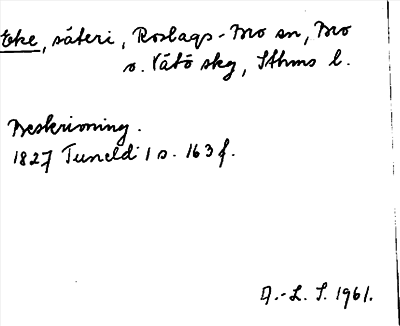 Eke, säteri, Roslags-Bro sn, Bro
o. Vätö skg, Sthms l.
Beskrivning.
1827 Tuneld I s. 163 f.
A.-L. S. 1961.